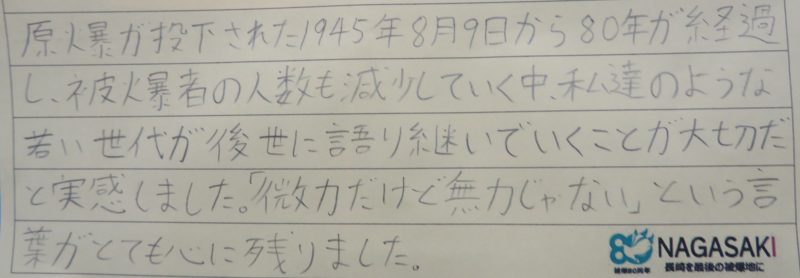 原爆が投下された1945年8月9日から80年が経過
し、被爆者の人数も減少していく中、私達のような
若い世代が後世に語り継いでいくことが大切だ
と実感しました。「微力だけど無力じゃない」という言
葉がとても心に残りました。
80 NAGASAKI
被爆80周年 長崎を最後の被爆地に